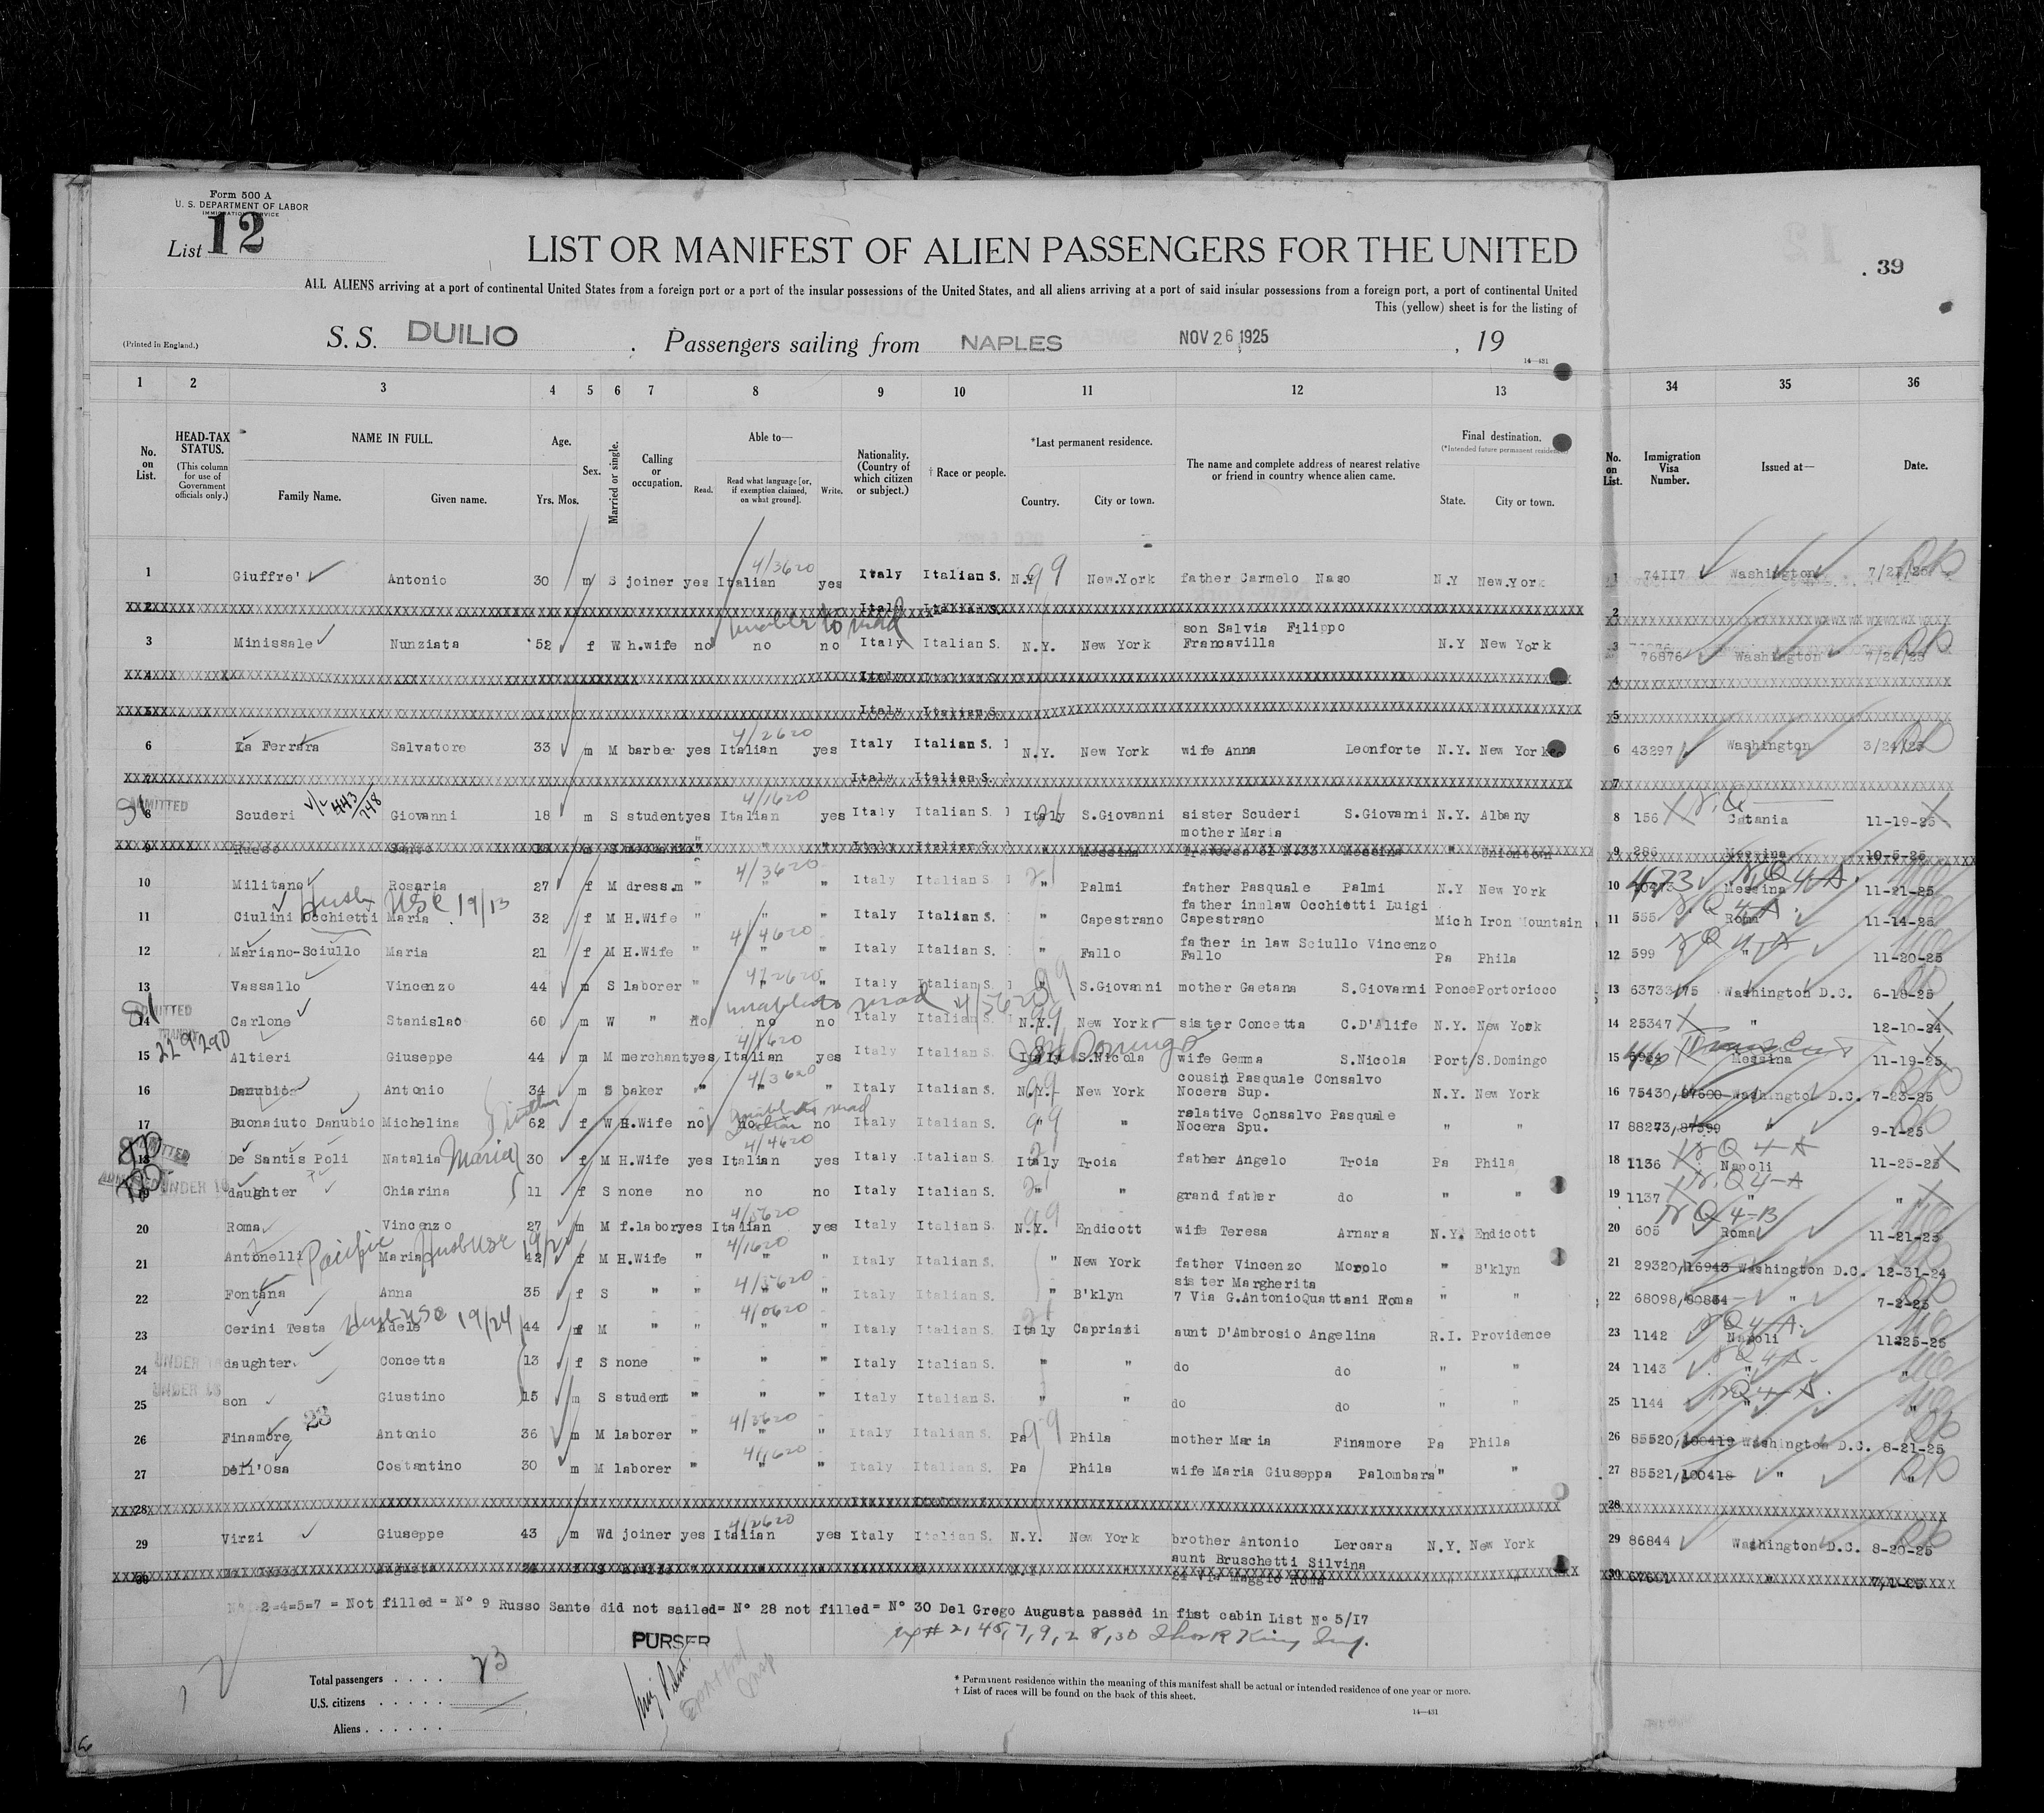 Form 500 A
U. S. DEPARTMENT OF LABOR
IMMIGRATION SERVICE
List 12
LIST OR MANIFEST OF ALIEN PASSENGERS FOR THE UNITED
. 39
ALL ALIENS arriving at a port of continental United States from a foreign port or a port of the insular possessions of the United States, and all aliens arriving at a port of said insular possessions from a foreign port, a port of continental United
This (yellow) sheet is for the listing of
(Printed in England.) S. S. DUILIO . Passengers sailing from NAPLES NOV 26 1925 , 19
14—431
1 2 3 4 5 6 7 8 9 10 11 12 13 34 35 36
No. on List. HEAD-TAX STATUS. (This column for use of Government officials only.) NAME IN FULL. Family Name. Given name. Age. Yrs. Mos. Sex. Married or single. Calling or occupation. Able to— Read. Read what language [or, if exemption claimed, on what ground]. Write. Nationality. (Country of which citizen or subject.) † Race or people. *Last permanent residence. Country. City or town. The name and complete address of nearest relative or friend in country whence alien came. Final destination. (*Intended future permanent residence) State. City or town. No. on List. Immigration Visa Number. Issued at— Date.
1 Giuffre' Antonio 30 m S joiner yes Italian 4/3620 yes Italy Italian S. N.Y 99 New.York father Carmelo Naso N.Y New.York 1 74117 Washington 7/21/25
2 Italy Italian S. 2
3 Minissale Nunziata 52 f W h.wife no no unable to read no Italy Italian S. N.Y. New York son Salvia Filippo Francavilla N.Y New York 3 76876 Washington 7/24/25
4 Italy Italian S. 4
5 Italy Italian S. 5
6 La Ferrara Salvatore 33 m M barber yes Italian 4/2620 yes Italy Italian S. N.Y. New York wife Anna Leonforte N.Y. New York 6 43297 Washington 3/24/25
7 Italy Italian S. 7
ADMITTED
8 Scuderi 443/748 Giovanni 18 m S student yes Italian 4/1620 yes Italy Italian S. Italy S.Giovanni sister Scuderi S.Giovanni N.Y. Albany 8 156 Catania 11-19-25
9 Russo Sante m S mechanic " " " Italy Italian S. " Messina mother Maria Traversa 61 N.33 Messina " Uniontown 9 286 Messina 10-5-25
10 Militano Rosaria 27 f M dress.m " 4/3620 " " Italy Italian S. " Palmi father Pasquale Palmi N.Y New York 10 473 Messina 11-21-25
11 Ciulini Occhietti Maria 32 f M H.Wife " " " Italy Italian S. " Capestrano father inmlaw Occhietti Luigi Capestrano Mich Iron Mountain 11 555 Roma 11-14-25
12 Mariano-Sciullo Maria 21 f M H.Wife " 4/4620 " " Italy Italian S. " Fallo father in law Sciullo Vincenzo Fallo Pa Phila 12 599 " 11-20-25
13 Vassallo Vincenzo 44 m S laborer " 4/2620 " " Italy Italian S. " S.Giovanni mother Gaetana S.Giovanni Ponce Portoricco 13 63733/75 Washington D.C. 6-18-25
ADMITTED
14 Carlone Stanislao 60 m W " no no unable to read no Italy Italian S. N.Y. 99 New York sister Concetta C.D'Alife N.Y. New York 14 25347 " 12-10-24
15 Altieri Giuseppe 44 m M merchant yes Italian 4/1620 yes Italy Italian S. Italy S.Nicola wife Gemma S.Nicola Port/S.Domingo 15 Messina 11-19-25
16 Danubio Antonio 34 m S baker " 4/3620 " " Italy Italian S. N.Y. 99 New York cousin Pasquale Consalvo Nocera Sup. N.Y. New York 16 75430/87600 Washingtot D.C. 7-23-25
17 Buonaiuto Danubio Michelina 62 f W H.Wife no no no Italy Italian S. " 99 " relative Consalvo Pasquale Nocera Spu. " " 17 88273/87599 " 9-1-25
ADMITTED
18 De Santis Poli Natalia Maria 30 f M H.Wife yes Italian 4/4620 yes Italy Italian S. Italy Troia father Angelo Troia Pa Phila 18 1136 Napoli 11-25-25
UNDER 16
19 daughter Chiarina 11 f S none no no no Italy Italian S. " " grand father do " " 19 1137 " "
20 Roma Vincenzo 27 m M f.labor yes Italian 4/3620 yes Italy Italian S. N.Y. 99 Endicott wife Teresa Arnara N.Y. Endicott 20 605 Roma 11-21-25
21 Antonelli Pacific Maria 42 f M H.Wife " 4/1620 " " Italy Italian S. " New York father Vincenzo Morolo " B'klyn 21 29320/16943 Washington D.C. 12-31-24
22 Fontana Anna 35 f S " " 4/3620 " " Italy Italian S. " B'klyn sister Margherita 7 Via G.Antonio Quattani Roma " " 22 68098/80864 " 7-2-25
23 Cerini Testa Adele 44 f M " " 4/0620 " " Italy Italian S. Italy Capriati aunt D'Ambrosio Angelina R.I. Providence 23 1142 Napoli 11225-25
UNDER 16
24 daughter Concetta 13 f S none " " " Italy Italian S. " " do do " " 24 1143 " "
UNDER 16
25 son Giustino 15 m S student " " " Italy Italian S. " " do do " " 25 1144 " "
26 Finamore 23 Antonio 36 m M laborer " 4/3620 " " Italy Italian S. Pa 99 Phila mother Maria Finamore Pa Phila 26 85520/100419 Washington D.C. 8-21-25
27 Dell'Osa Costantino 30 m M laborer " 4/1620 " " Italy Italian S. Pa Phila wife Maria Giuseppa Palombara " " 27 85521/100418 " "
28 Italy Italian S. 28
29 Virzi Giuseppe 43 m Wd joiner yes Italian 4/2620 yes Italy Italian S. N.Y. New York brother Antonio Lercara N.Y. New York 29 86844 Washington D.C. 8-20-25
30 Augusta S H.wife aunt Bruschetti Silvina 24 Via Maggio Roma 30 7/1-25
2=4=5=7 = Not filled = N° 9 Russo Sante did not sailed= N° 28 not filled= N° 30 Del Grego Augusta passed in fist cabin List N° 5/17
PURSER
Total passengers . . . . . 23
U.S. citizens . . . . .
Aliens . . . . . .
* Permanent residence within the meaning of this manifest shall be actual or intended residence of one year or more.
† List of races will be found on the back of this sheet.
14—431